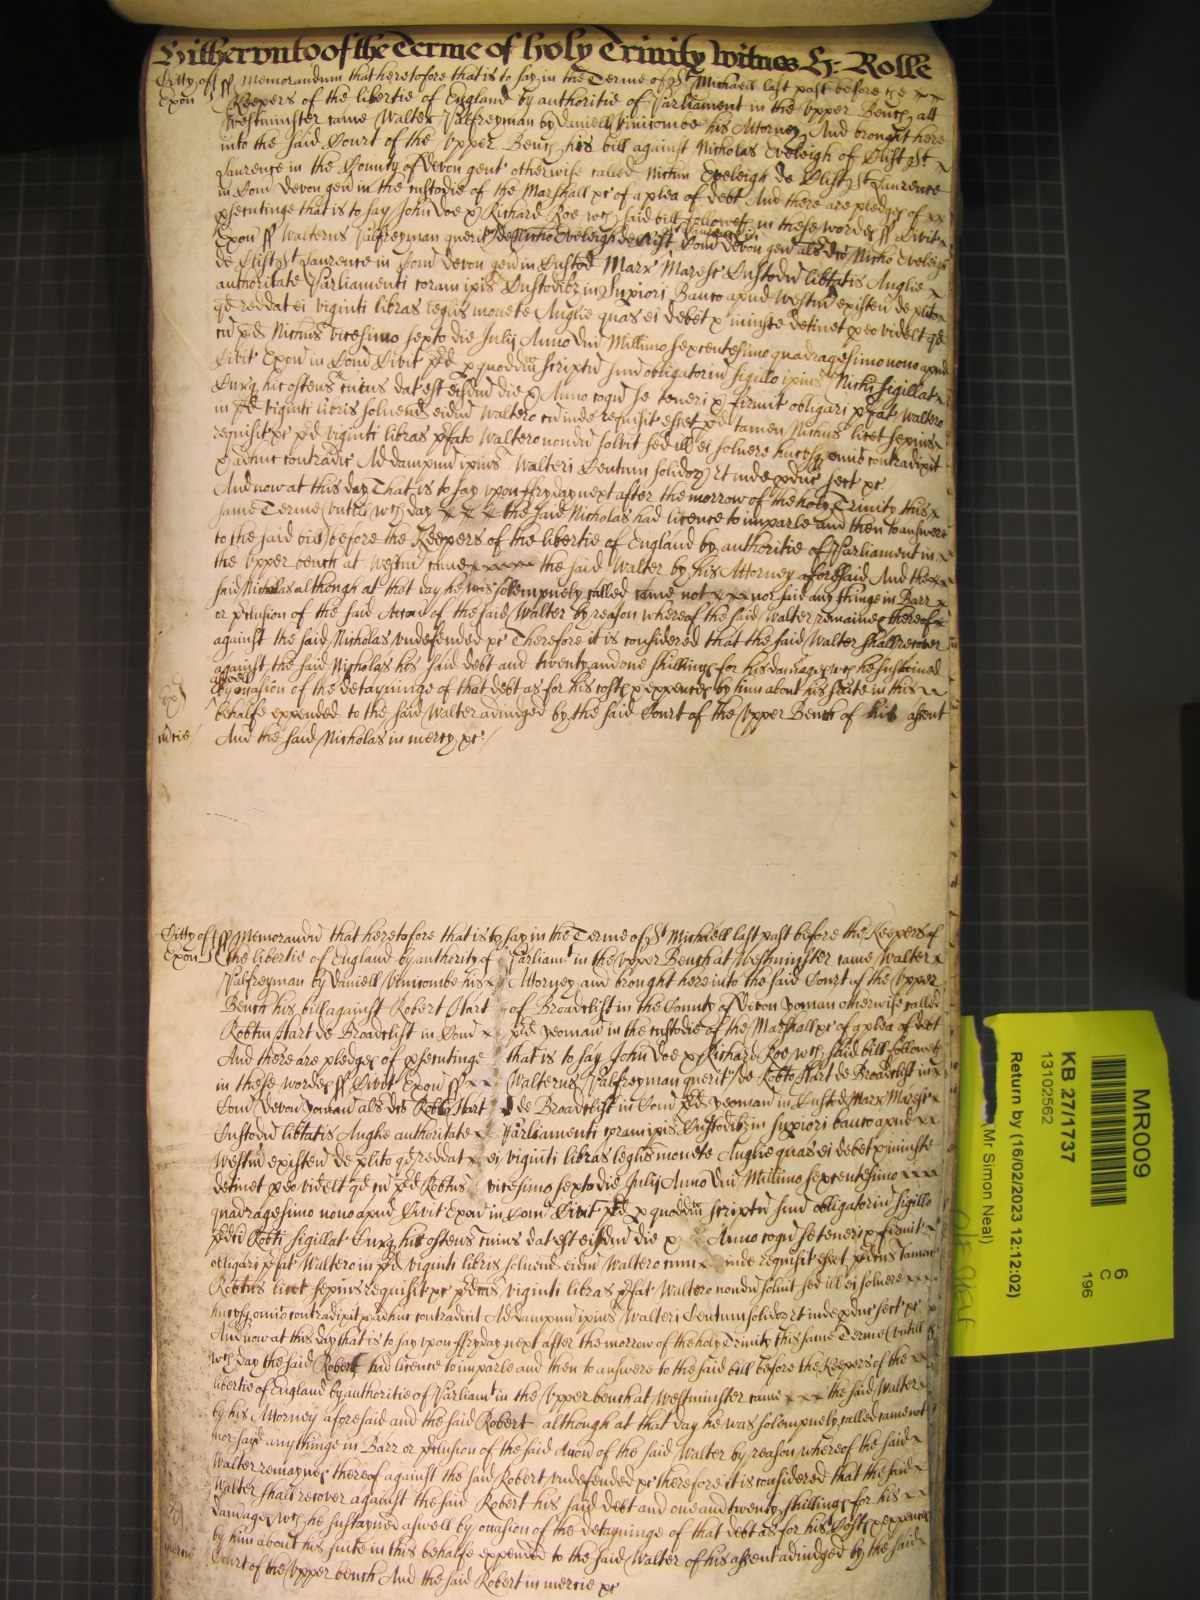 Hitherunto of the Terme of holy Trinity Witnes H: Rolle
Citty of Exon ss Memorandum that heretofore that is to say in the Terme of St Michaell last past before the
Keepers of the libertie of England by authoritie of Parliament in the Vpper Bench att
Westminster came Walter Palfreyman by Daniell Vinicombe his Attorney And brought here
into the said Court of the Vpper Bench his bill against Nicholas Eveleigh of Clist St
Laurence in the County of Devon gent otherwise called Nichm Eveleigh de Clist St Laurence
in Com Devon gen in the custodie of the Marshall &c of a plea of debt And there are pledges of
psecutinge that is to say John Doe & Richard Roe wch said bill followeth in these wordes ss Civit
Exon ss Walterus Palfreyman querit de Nicho Eveleigh de Clist St Laurence in Com Devon gen als dco Nicho Eveleigh
de Clist St Laurence in Com Devon gen in Custod Marr Maresc Custodu libtatis Anglie
authoritate Parliamenti coram ipis Custodibz in Supiori Banco apud Westm existen de plito
qd reddat ei viginti libras leglis monete Anglie quas ei debet & iniuste detinet p eo videlt qd
cu pd Nichus vicesimo septo die Julij Anno Dni Millimo sexcentesimo quadragesimo nono apud
Civit Exon in Com Civit pd p quoddm scriptu suu obligatoriu sigillo ipius Nichi sigillat
Curq hic ostens cuius dat est eisdm die & Anno cogn se teneri & firmit obligari pfat Waltero
in pd viginti libris solvend eidm Waltero cu inde requisit esset pd tamen Nichus licet sepius
requisit &c pd viginti libras pfato Waltero nondu solvit sed ill ei solvere hucusq omio contradixit
& adhuc contradic Ad dampnu ipius Walteri Centum solidoz Et inde pduc sect &c
And now at this day That is to say vpon ffryday next after the morrow of the holy Trinity this
same Terme vntill wch day the said Nicholas had licence to imparle and then to answere
to the said bill before the Keepers of the libertie of England by authoritie of Parliament in
the vpper bench at Westm came the said Walter by his Attorney aforesaid And the
said Nicholas although at that day he was solempnely called came not nor said any thinge in Barr
or pclusion of the said Accon of the said Walter by reason whereof the said Walter remaines thereof
against the said Nicholas vndefended &c Therefore it is considered that the said Walter shall recover
against the said Nicholas his said debt and twenty and one shillings for his damages wch he sustained
aswell by occasion of the detayninge of that debt as for his costs & expences by him about his suite in this
behalfe expended to the said Walter adiudged by the said Court of the Vpper Bench of his assent
mcie And the said Nicholas in mercy &c
Citty of Exon ss Memorandu that heretofore that is to say in the Terme of St Michaell last past before the Keepers of
the libertie of England by authority of Parliamt in the Vpper Bench at Westminster came Walter
Palfreyman by Daniell Vinicombe his Attorney and brought here into the said Court of the Vpper
Bench his bill against Robert Hart of Broadclist in the County of Devon yoman otherwise called
Robtm Hart de Broadclist in Com pd yeoman in the custodie of the Marshall &c of a plea of debt
And there are pledges of psecutinge that is to say John Doe & Richard Roe wch said bill followeth
in these wordes ss Civit Exon ss Walterus Palfreyman querit de Robto Hart de Broadclist in
Com Devon yoman als dco Robto Hart de Broadclist in Com pd yeoman in Custod Marr Maresc
Custodu libtatis Anglie authoritate Parliamenti coram ipis Custodibz in Supiori banco apud
Westm existen de plito qd reddat ei viginti libras leglis monete Anglie quas ei debet & iniuste
detinet p eo videlt qd cu pd Robtus vicesimo septo die Julij Anno Dni Millimo sexcentesimo
quadragesimo nono apud Civit Exon in Com Civit pd p quoddm scriptu suu obligatoriu sigillo
pdci Robti sigillat Curq hic ostens cuius dat est eisdm die & Anno cogn se teneri & firmit
obligari pfat Waltero in pd viginti libris solvend eidm Waltero cum inde requisit esset pdcus tamen
Robtus licet sepius requisit &c pdcas viginti libras pfat Waltero nondu solvit sed ill ei solvere
hucusq omio contradixit & adhuc contradicit Ad dampnu ipius Walteri Centum solidoz Et inde pduc sect &c
And now at this day that is to say vpon ffryday next after the morrow of the holy Trinity this same Terme vntill
wch day the said Robert had licence to imparle and then to answere to the said bill before the Keepers of the
libertie of England by authoritie of Parliamt in the Vpper bench at Westminster came the said Walter
by his Attorney aforesaid and the said Robert although at that day he was solempnely called came not
nor sayd any thinge in Barr or pclusion of the said Accon of the said Walter by reason whereof the said
Walter remaynes thereof against the said Robert vndefended &c therefore it is considered that the said
Walter shall recover against the said Robert his said debt and one and twenty shillings for his
damages wch he sustayned aswell by occasion of the detayninge of that debt as for his Costs & expences
by him about his suite in this behalfe expended to the said Walter of his assent adiudged by the said
Court of the Vpper bench And the said Robert in mercie &c
MR009
6
C
196
KB 27/1737
13102562
Return by (16/02/2023 12:12:02)
(Mr Simon Neal)